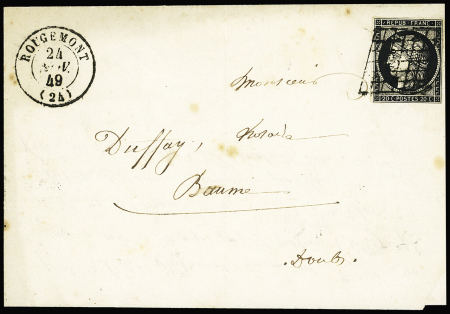 ROUGEMONT
24
49
(24)
REPUB. FRANC.
20 C POSTES 20 C
Monsieur
Duffay, Notaire
Baume
Doubs.